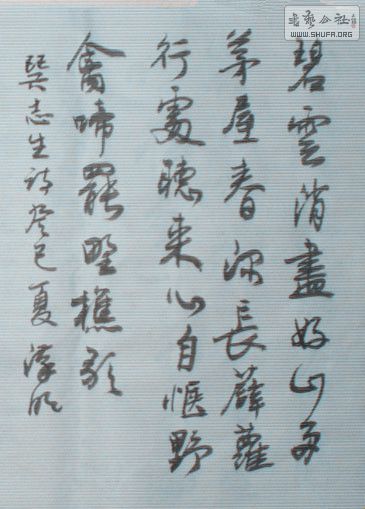 碧雲消盡好山多
茅屋春深長薜蘿
行處聽來心自愜野
禽啼罷野樵歌
志生詩癸巳夏
书艺公社
WWW.SHUFA.ORG